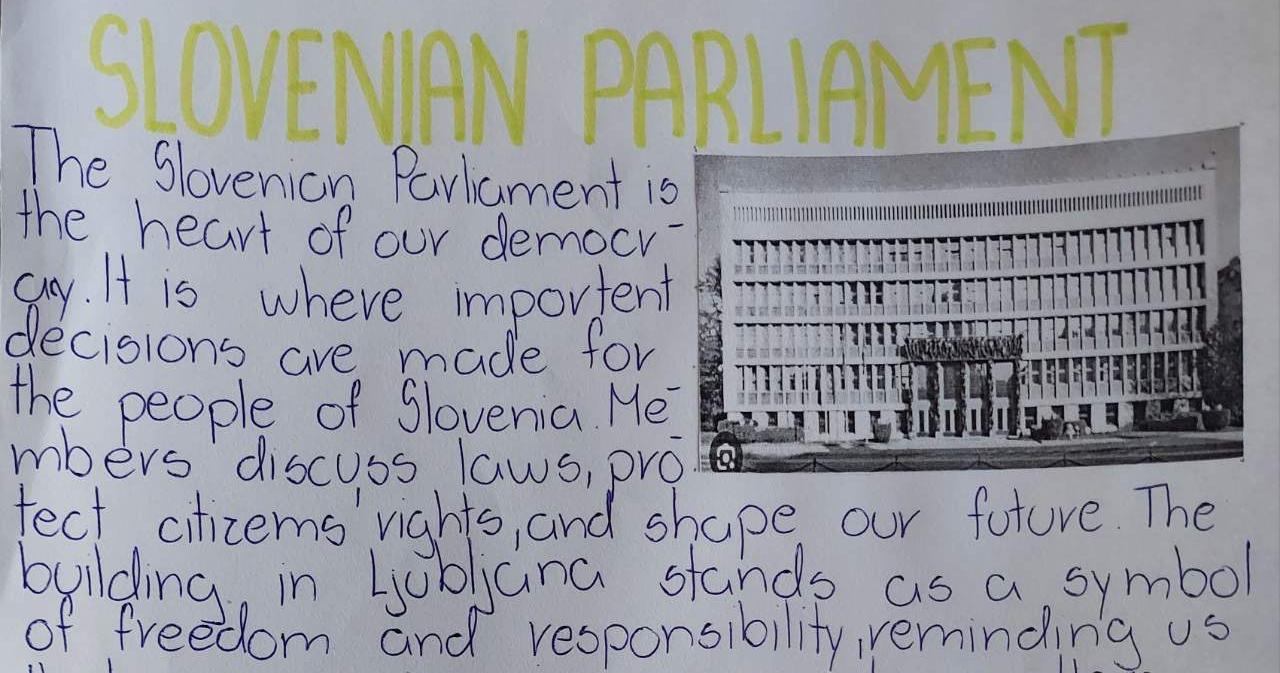 SLOVENIAN PARLIAMENT
The Slovenian Parliament is
the heart of our democr-
acy. It is where importent
decisions are made for
the people of Slovenia. Me-
mbers discuss laws, pro-
tect citizems' rights, and shape our future. The
building in Ljubljana stands as a symbol
of freedom and responsibility, reminding us